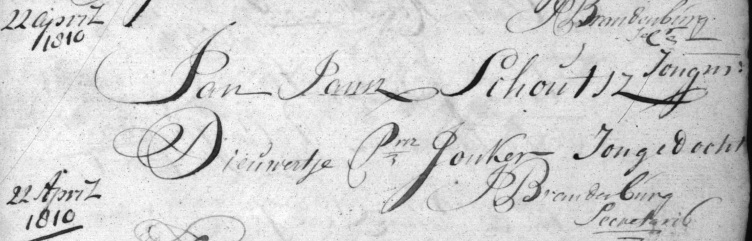 22 april
1810
P Brandenburg
Secrs
Jan Jansz Schoutsz Jongm:
Dieuwertje Pr Jonker Jongedocht
22 April
1810
P Brandenburg
Secretaris